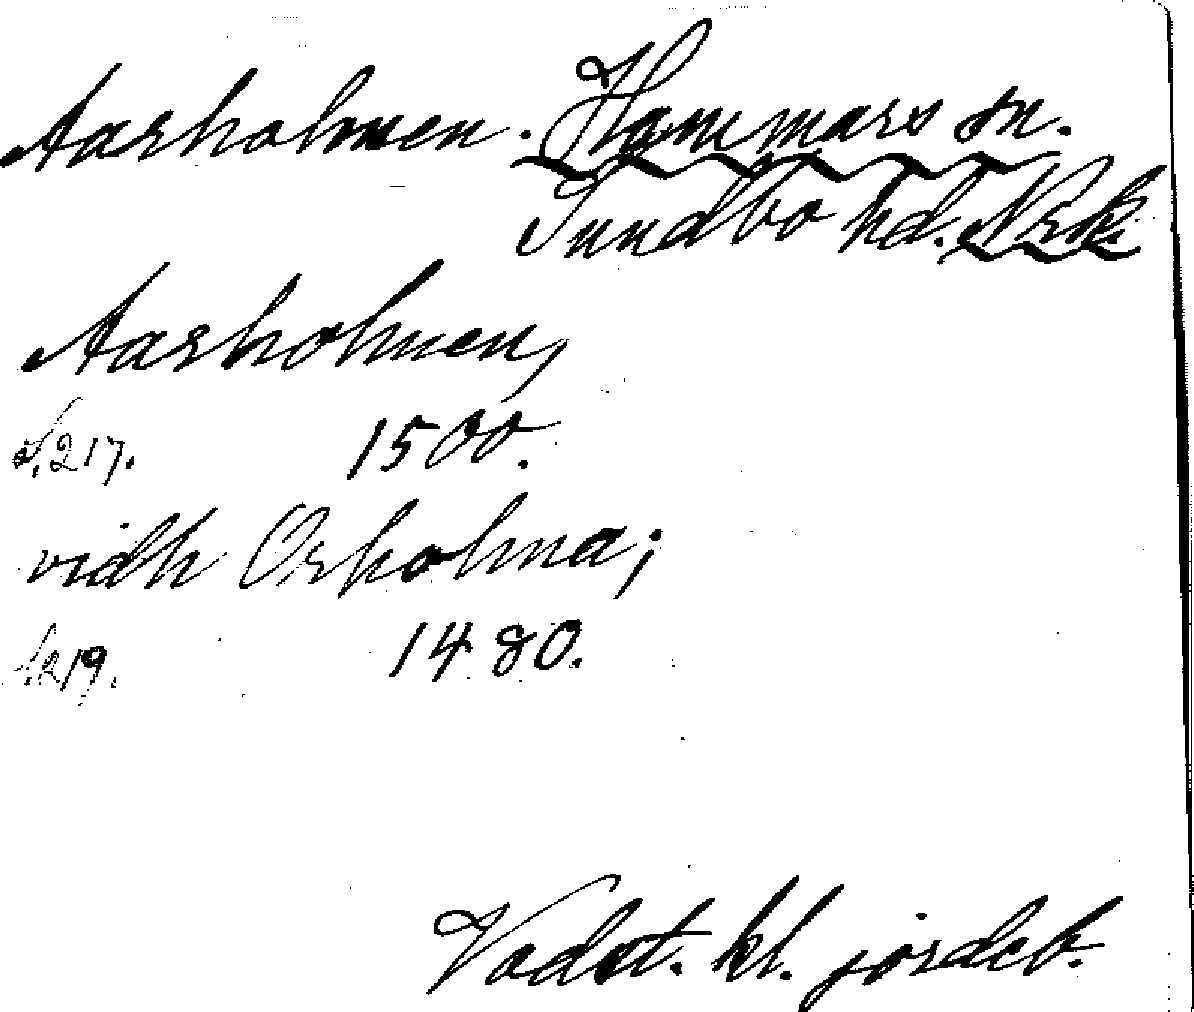 Aasholmen. Hammars sn.
Sundbo hd. Nrk.
Aasholmen,
S. 217. 1500.
vidh Orholma;
S. 219. 1480.
Vadst. kl. jordeb.